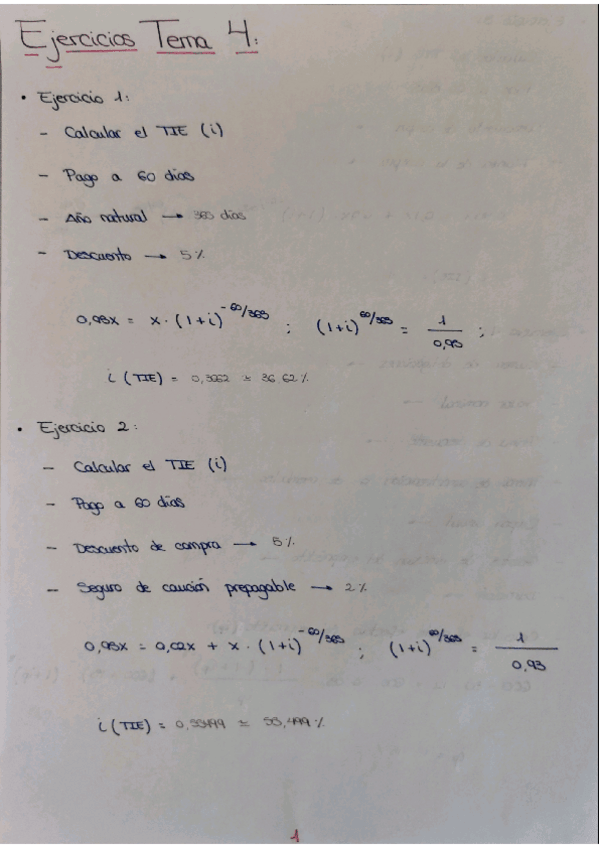 Ejercicios Tema 4:
• Ejercicio 1:
- Calcular el TIE (i)
- Pago a 60 días
- Año natural → 365 días
- Descuento → 5%
0,95x = x · (1+i)^-60/365 ; (1+i)^60/365 = 1/0,95 ;
i (TIE) = 0,3662 ≈ 36,62%
• Ejercicio 2:
- Calcular el TIE (i)
- Pago a 60 días
- Descuento de compra → 5%
- Seguro de caución prepagable → 2%
0,95x = 0,02x + x · (1+i)^-60/365 ; (1+i)^60/365 = 1/0,93
i (TIE) = 0,55499 ≈ 55,499%
1